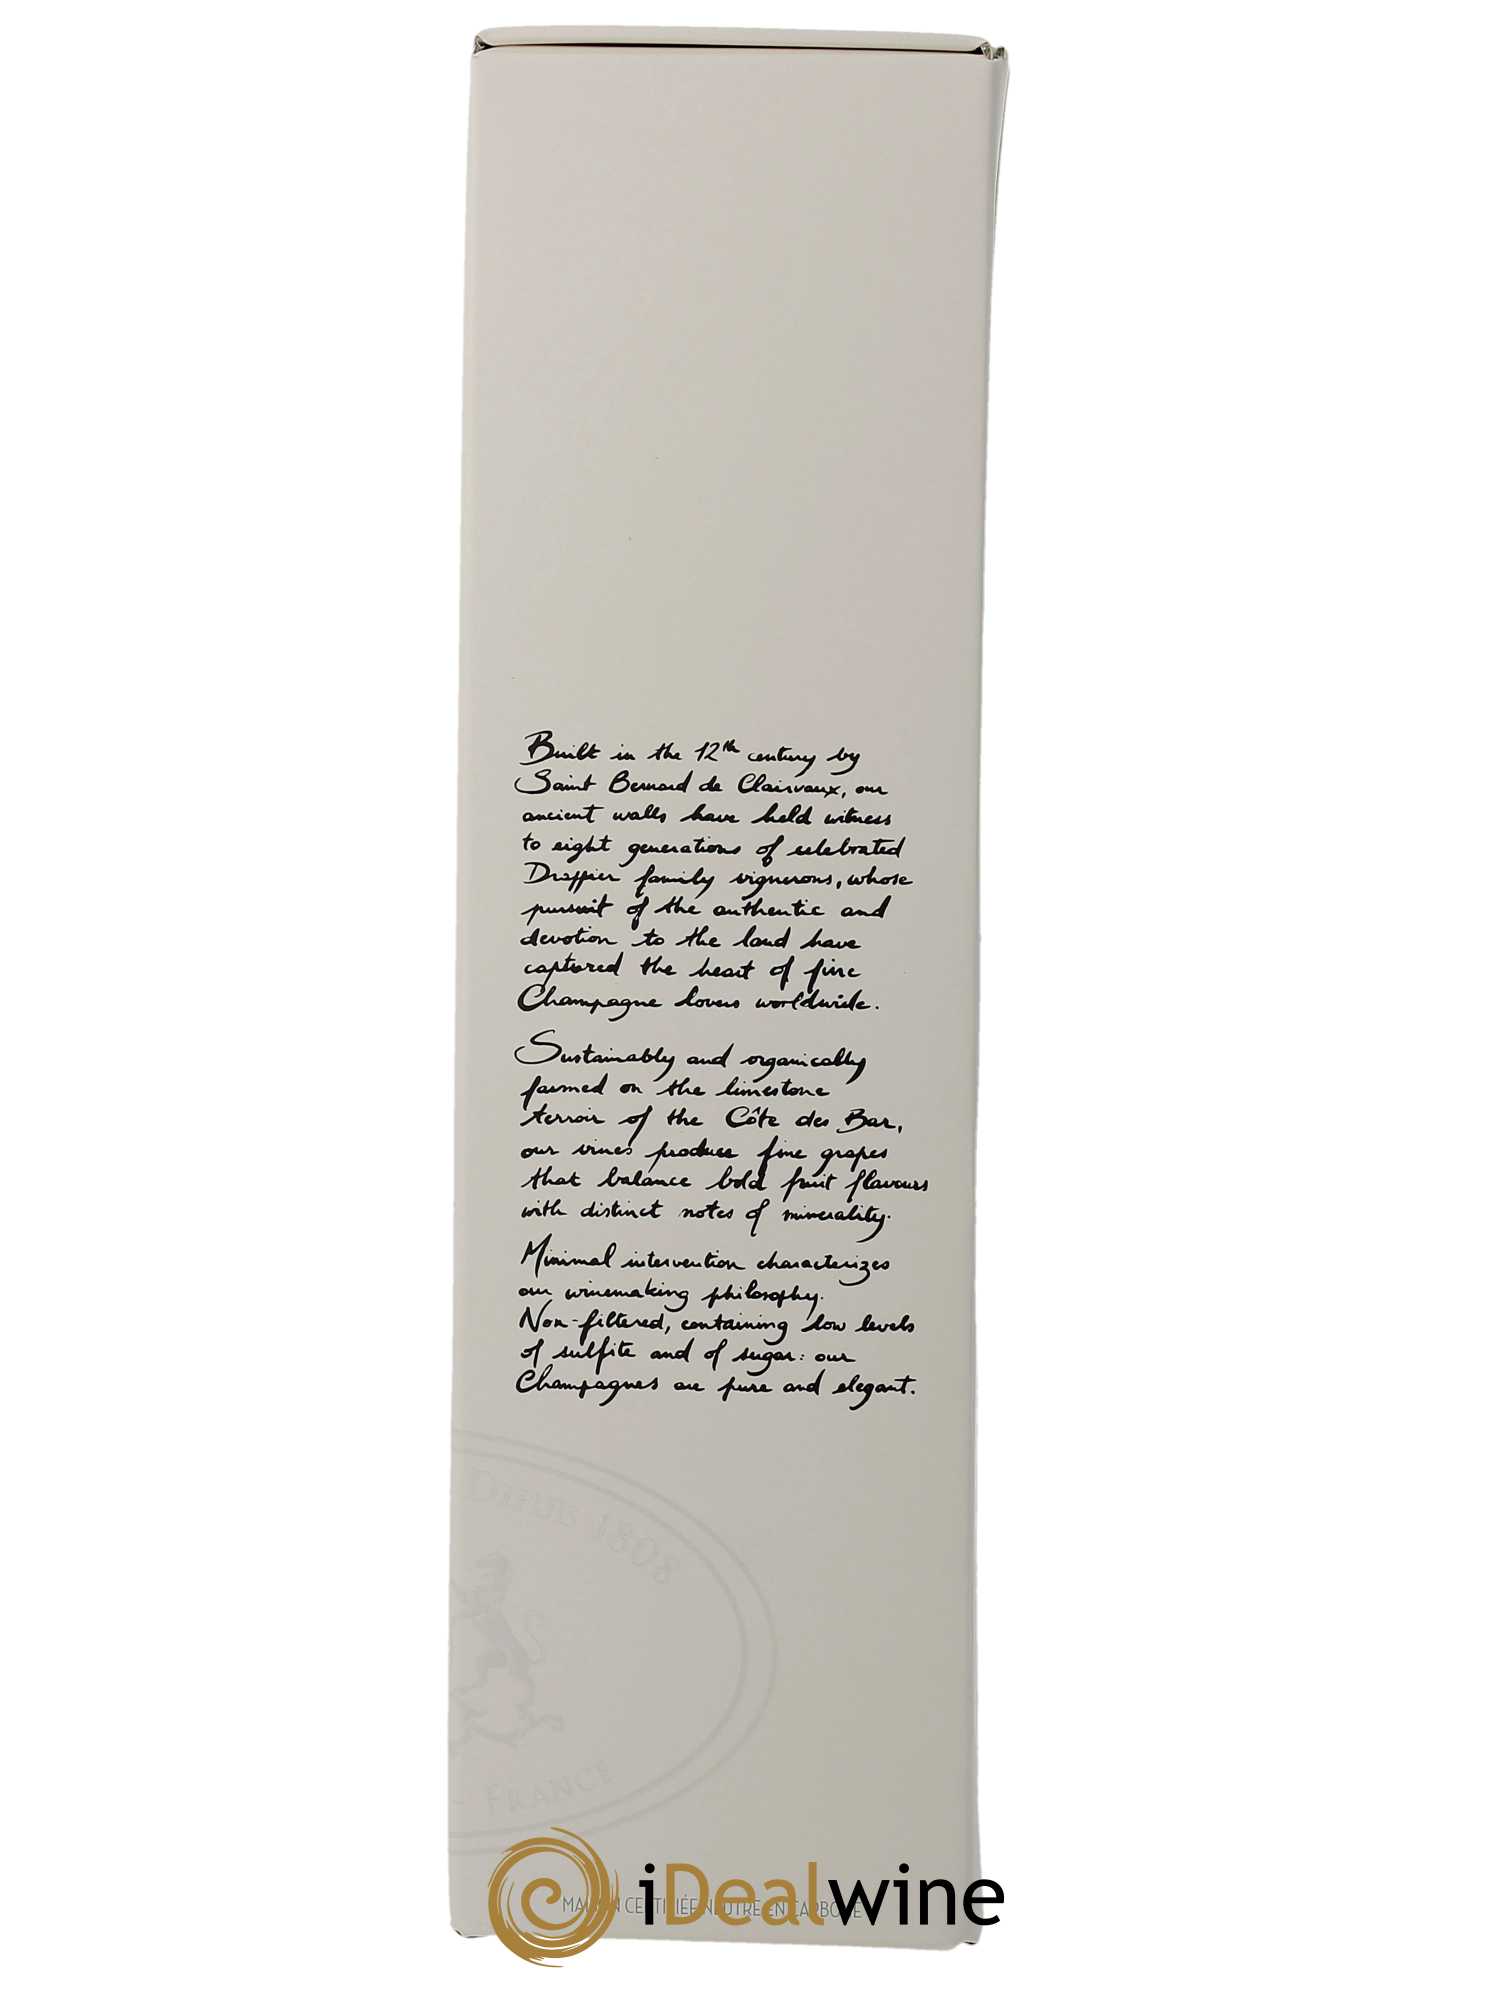 Built in the 12th century by
Saint Bernard de Clairvaux, our
ancient walls have held witness
to eight generations of celebrated
Drappier family vignerons, whose
pursuit of the authentic and
devotion to the land have
captured the heart of fine
Champagne lovers worldwide.
Sustainably and organically
farmed on the limestone
terroir of the Côte des Bar,
our vines produce fine grapes
that balance bold fruit flavours
with distinct notes of minerality.
Minimal intervention characterizes
our winemaking philosophy.
Non-filtered, containing low levels
of sulfite and of sugar: our
Champagnes are pure and elegant.
DEPUIS 1808
- FRANCE
MAISON CERTIFIÉE NEUTRE EN CARBONE
iDealwine